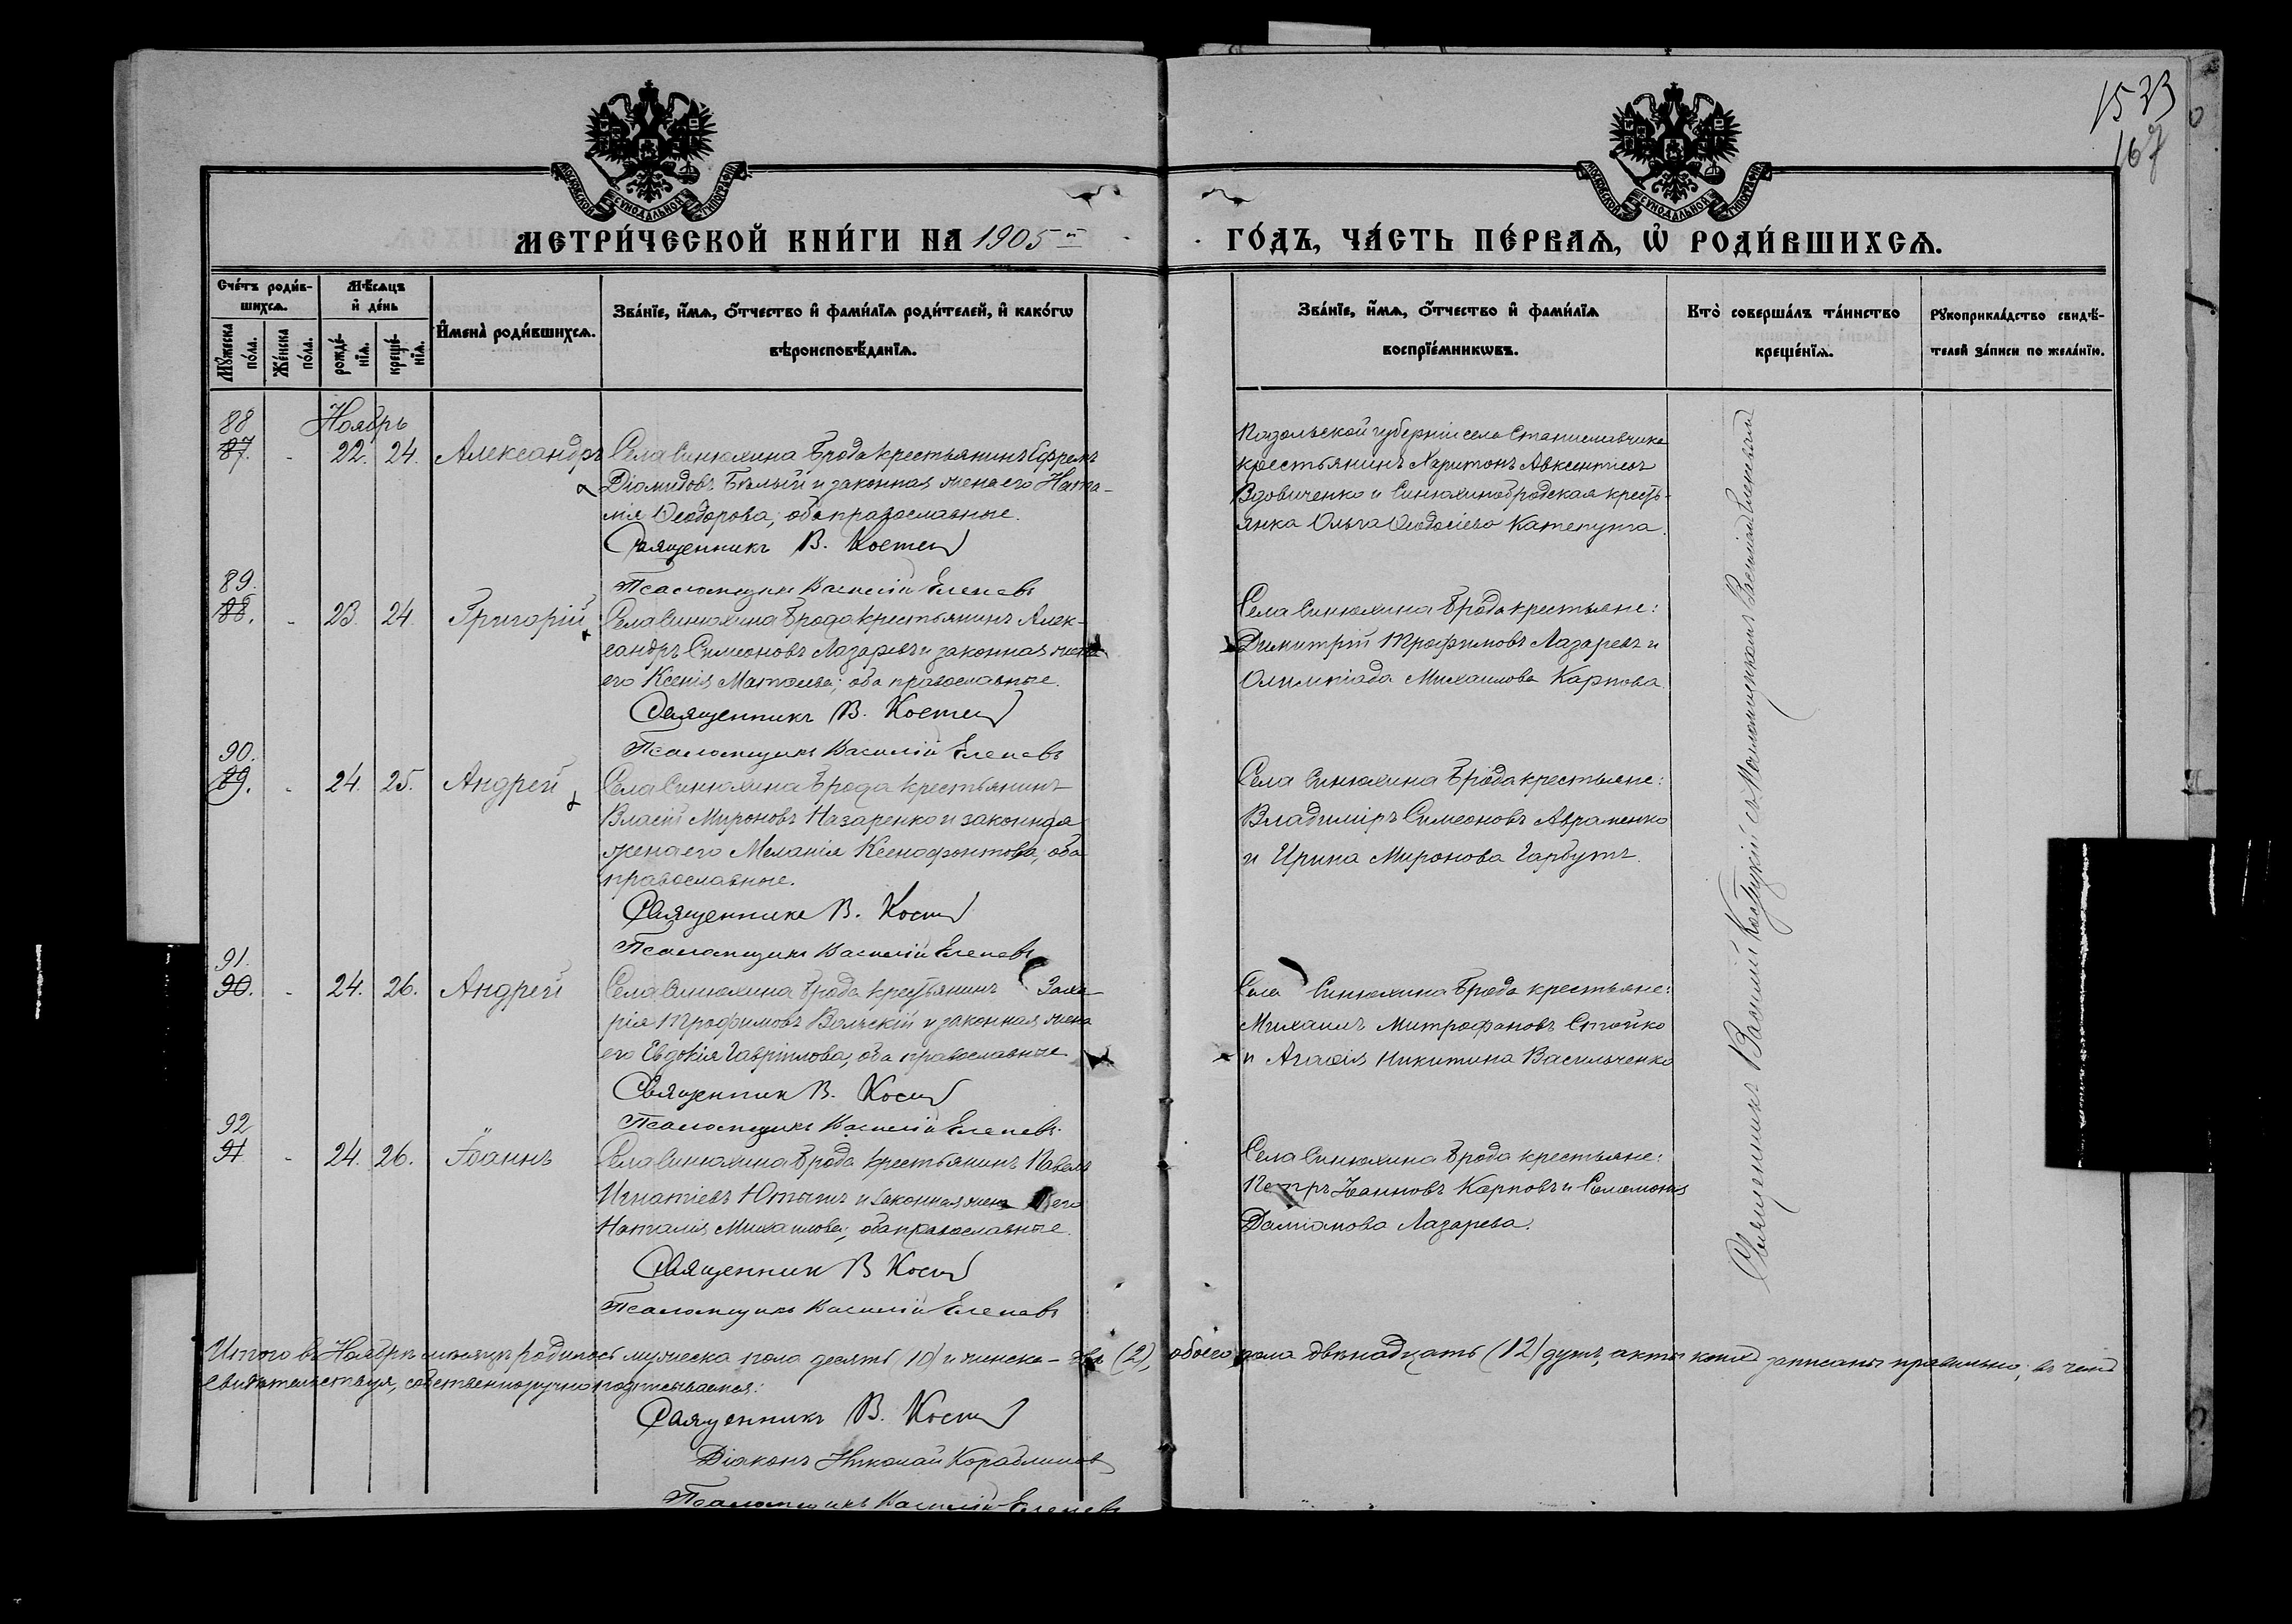 1533
167
МЕТРИ́ЧЕСКОЙ КНИ́ГИ НА 1905 й
ГО́ДЪ, ЧА́СТЬ ПЕ́РВАѦ, Ѡ҆ РОДИ́ВШИХСѦ.
Сче́тъ роди́в-
шихсѧ.
Мꙋжеска по́ла.
Же́нска по́ла.
Мѣ́сѧцъ
и҆ де́нь
рожде́-
нїѧ.
креще́-
нїѧ.
И҆мена̀ роди́вшихсѧ.
Зва́нїе, и҆́мѧ, о҆́тчество и҆ фами́лїѧ роди́телей, и҆ како́гѡ
вѣроисповѣ́данїѧ.
Зва́нїе, и҆́мѧ, о҆́тчество и҆ фами́лїѧ
воспрїе́мникѡвъ.
Кто̀ соверша́лъ та́инство
креще́нїѧ.
Рꙋкоприкла́дство свидѣ́-
телей за́писи по жела́нїю.
Ноябрь
88
87. - 22. 24. Александръ
Села Синюхина Брода крестьянинъ Ефремъ
Діомидовъ Бѣлый и законная жена его Ната-
лія Ѳеодорова; оба православные.
Священникъ В. Костец
Псаломщикъ Василій Еленевъ
Подольской губерніи села Станиславчика
крестьянинъ Харитонъ Авксентіевъ
Вдовиченко и Синюхинобродская кресть-
янка Ольга Ѳеодосіева Катепута.
89.
88. - 23. 24. Григорій
Села Синюхина Брода крестьянинъ Алек-
сандръ Симеоновъ Лазаревъ и законная жена
его Ксенія Матѳеева; оба православные.
Священникъ В. Костец
Псаломщикъ Василій Еленевъ
Села Синюхина Брода крестьяне:
Димитрій Трофимовъ Лазаревъ и
Олимпіада Михаилова Карпова.
90.
89. - 24. 25. Андрей
Села Синюхина Брода крестьянинъ
Власій Мироновъ Назаренко и законная
жена его Меланія Ксенофонтова, оба
православные.
Священникъ В. Костец
Псаломщикъ Василій Еленевъ
Села Синюхина Брода крестьяне:
Владиміръ Симеоновъ Авраменко
и Ирина Миронова Гарбузъ.
91.
90. - 24. 26. Андрей
Села Синюхина Брода крестьянинъ Заха-
рія Трофимовъ Вольскій и законная жена
его Евдокія Гавріилова, оба православные
Священник В. Костец
Псаломщикъ Василій Еленевъ
Села Синюхина Брода крестьяне:
Михаилъ Митрофановъ Стойко
и Агаѳія Никитина Васильченко
92
91 - 24. 26. Іоаннъ
Села Синюхина Брода крестьянинъ Павелъ
Игнатіевъ и законная жена его
Наталія Михаилова; оба православные.
Священник В Костец
Псаломщикъ Василій Еленевъ
Села Синюхина Брода крестьяне:
Петръ Іоанновъ Карповъ и Соломонія
Даміанова Лазарева.
Священникъ Василій съ Псаломщикомъ Василіемъ Еленевымъ
Итого въ Ноябрѣ мѣсяцѣ родилось мужеска пола десять (10) и женска - два (2), обоего пола двѣнадцать (12) душъ, акты коихъ записаны правильно; въ чемъ
свидѣтельствуя, собственноручно подписываемся:
Священникъ В. Костец
Діаконъ Николай Кораблиновъ
Псаломщикъ Василій Еленевъ